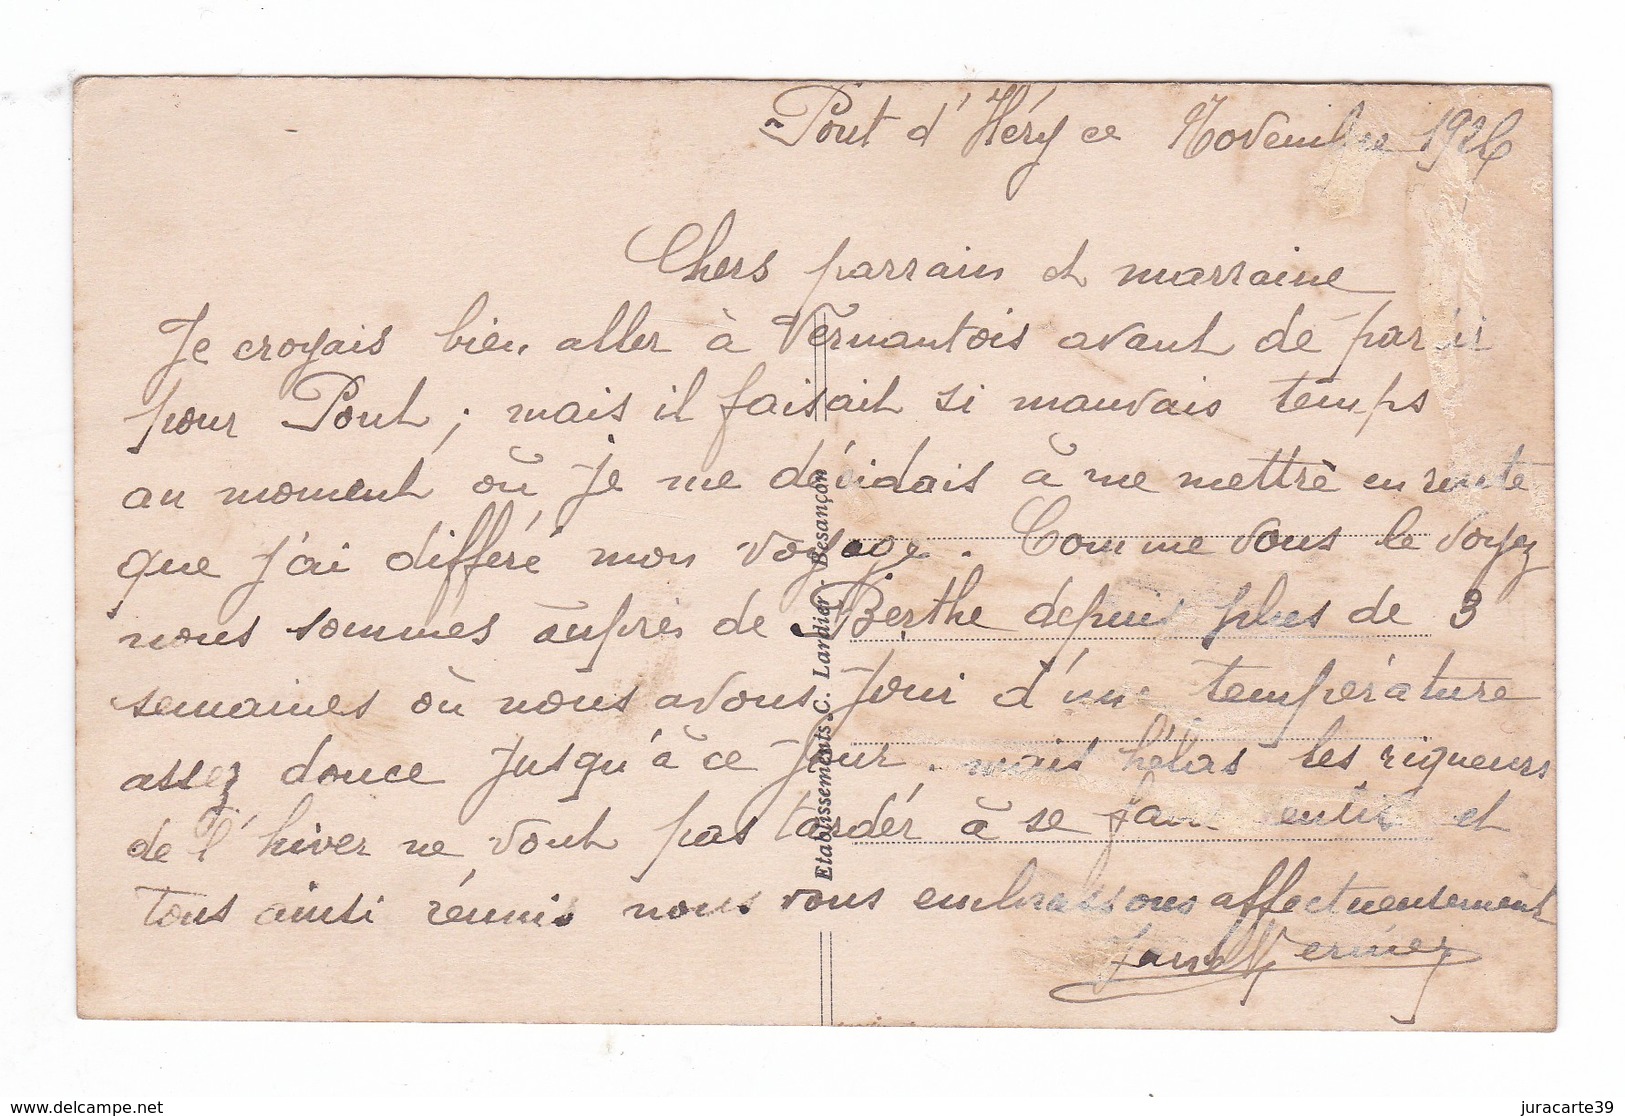 Pont d'Héry ce Novembre 1926
Chers parrain et marraine
Je croyais bien aller à Vernantois avant de partir
pour Pont ; mais il faisait si mauvais temps
au moment où je me décidais à me mettre en route
que j'ai différé mon voyage. Comme vous le voyez
nous sommes auprès de Berthe depuis plus de 3
semaines où nous avons joui d'une température
assez douce jusqu'à ce jour. mais hélas les rigueurs
de l'hiver ne vont pas tarder à se faire sentir et
tous ainsi réunis nous vous embrassons affectueusement
Etablissements C. Lardier - Besançon
delcampe.net
juracarte39